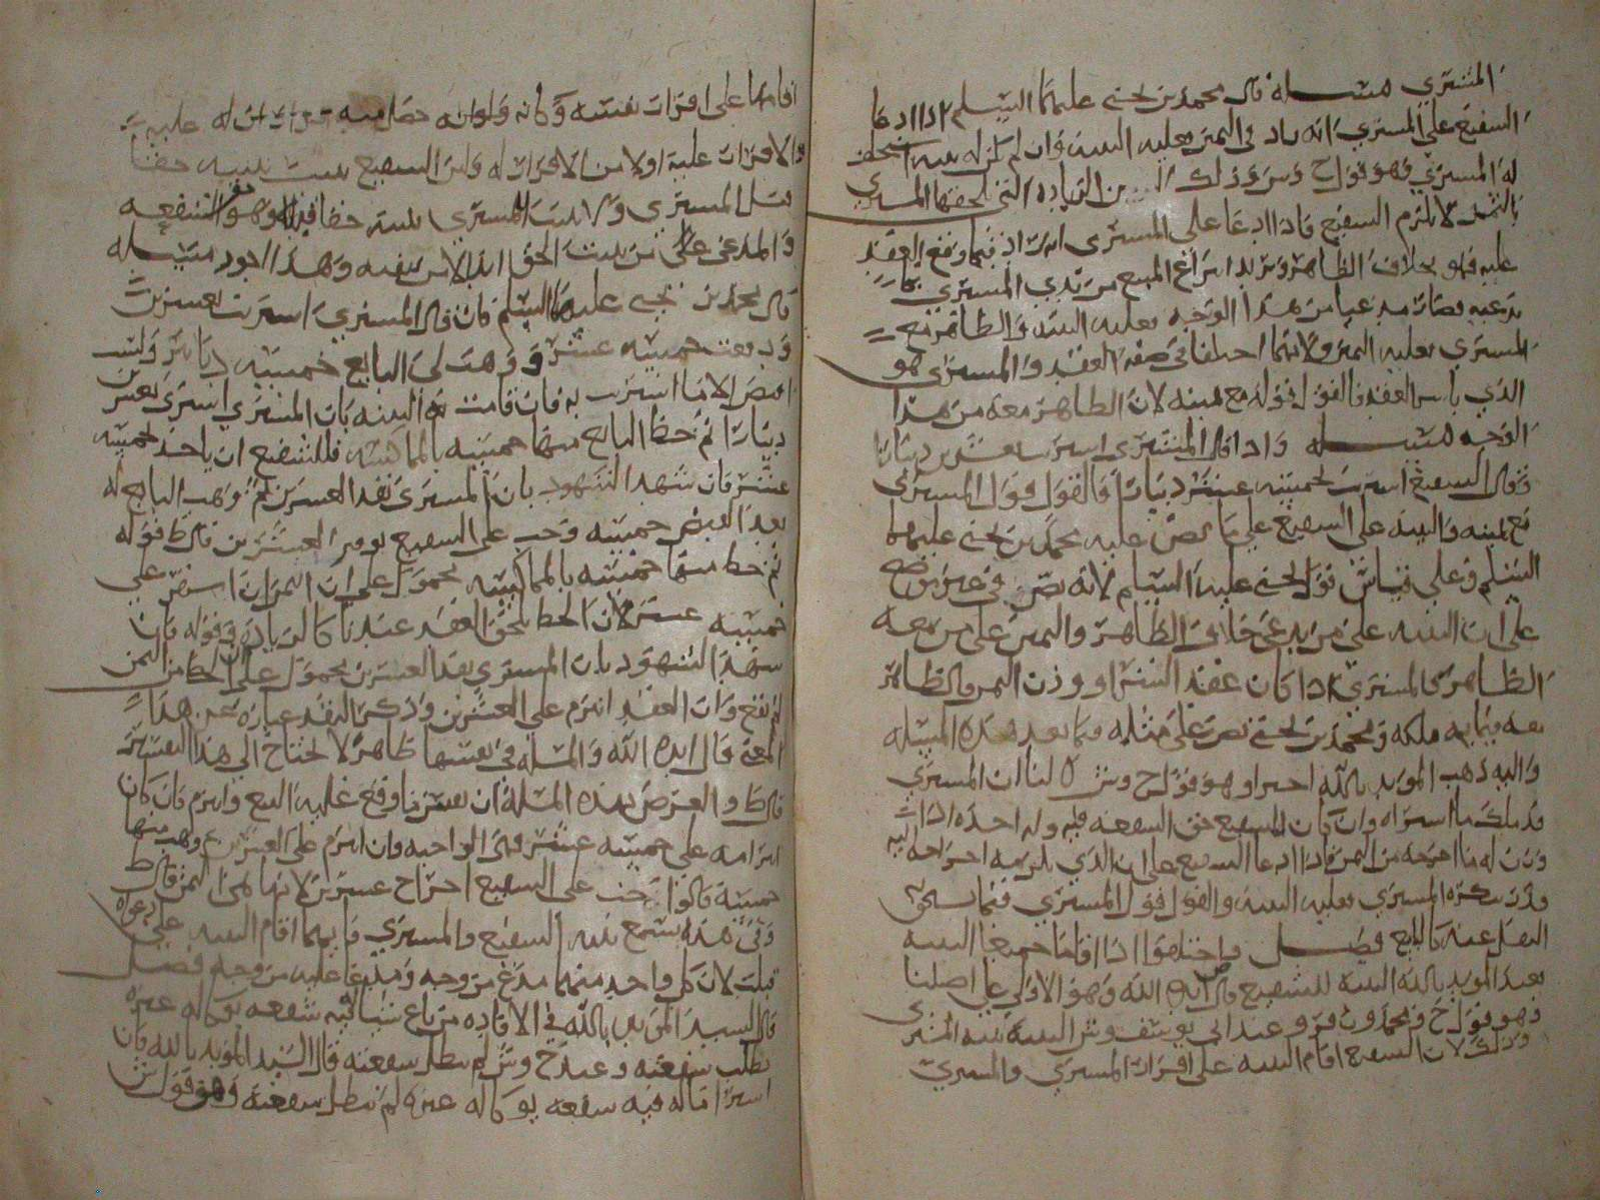 المشتري مسئلة قال محمد بن يحيى عليهما السلم اذا ادعا
الشفيع على المشتري انه زاد في الثمن فعليه البينة وان لم يكن له بينة استحلف
له المشتري فهو قول ح وش وذلك ان الزيادة التي يلحقها المشتري
بالثمن لا يلزم الشفيع فاذا ادعا على المشتري انه زاد فيما وقع العقد
عليه فهو بخلاف الظاهر ويريد انتزاع المبيع من يدي المشتري بما
يدعيه فصار مدعيا من هذا الوجه فعليه البينة والظاهر مع
المشتري فعليه اليمين ولانهما اختلفا في صفة العقد والمشتري هو
الذي باشر العقد فالقول قوله مع يمينه لان الظاهر معه من هذا
الوجه مسئلة واذا قال المشتري اشتريت بعشرين دينارا
وقال الشفيع اشتريت بخمسة عشر دينارا فالقول قول المشتري
مع يمينه والبينة على الشفيع على ما نص عليه محمد بن يحيى عليهما
السلم وعلى قياس قول يحيى عليه السلم لانه نص في غير موضع
على ان البينة على من يدعي خلاف الظاهر واليمين على من معه
الظاهر كالمشتري اذا كان عقد الشرا ووزن الثمن فالظاهر
معه فيما به ملكه ومحمد بن يحيى نص على مثله فيما بعد هذه المسئلة
واليه ذهب المويد بالله اخيرا وهو قول ح وش لنا ان المشتري
قد ملك ما اشتراه وان كان للشفيع حق الشفعة فيه وله اخذه اذا
وزن له ما اخرجه من الثمن فاذا ادعا الشفيع على ان الذي يلزمه اخراجه اليه
دون ما يذكره المشتري فعليه البينة والقول قول المشتري فيما يستحق
النقل عنه كالبايع فصل فان اختلفوا اذا اقاما جميعا البينة
فعند المويد بالله البينة للشفيع قال ايده الله وهو الاولى على اصلنا
وهو قول ح ومحمد وزفر وعند ابي يوسف وش البينة بينة المشتري
وذلك لان الشفيع اقام البينة على اقرار المشتري والمشتري
اقامها على اقرار نفسه
والاقرار عليه اولا من الاقرار له ولان الشفيع يثبت ببينته حقا
قبل المشتري ولا يثبت المشتري ببينته حقا قبل الشفيع وهو حق الشفعة
والمدعي على من يثبت الحق ابدا لا من ينفيه وهذا اجود مسئلة
قال محمد بن يحيى عليهما السلم فان قال المشتري اشتريت بعشرين
ودفعت خمسة عشر ووهب لي البايع خمسة دنانير وليست
اقبض الا ما اشتريت به فان قامت له البينة بان المشتري اشترى بعشرين
دينارا ثم حط البايع منها خمسة بالمماكسة فللشفيع ان ياخذ بخمسة
عشر فان شهد الشهود بان المشتري نقد العشرين ثم وهب البايع له
بعد القبض خمسة وجب على الشفيع توفير العشرين قال ط قوله
ثم حط منها خمسة بالمماكسة محمول على ان الثمن استقر على
خمسة عشر لان الحط يلحق العقد عندنا كالزيادة وقوله فان
شهد الشهود بان المشتري نقد العشرين محمول على ان الحط من الثمن
لم يقع وان العقد انبرم على العشرين وذكر النقد عبارة عن هذا
المعنى قال ايده الله والمسئلة في نفسها ظاهرة لا تحتاج الى هذا التفسير
قال ط والغرض بهذه المسئلة ان يعتبر ما وقع عليه البيع وانبرم فان كان
ابرامه على خمسة عشر فهي الواجبة وان انبرم على العشرين ووهب منها
خمسة قالوا يجب على الشفيع اخراج عشرين لانها هي الثمن قال ط
وفي هذه تسمع بينة الشفيع والمشتري فايهما اقام البينة على دعواه
قبلت لان كل واحد منهما مدع من وجه ومدعا عليه من وجه فصل
قال السيد المويد بالله في الافادة من باع شيا فيه شفعه بوكالة غيره
بطلت شفعته وعند ح وش لم تبطل شفعته قال السيد المويد بالله فان
اشترا ما له فيه شفعة بوكالة غيره لم تبطل شفعته وهو قول ش